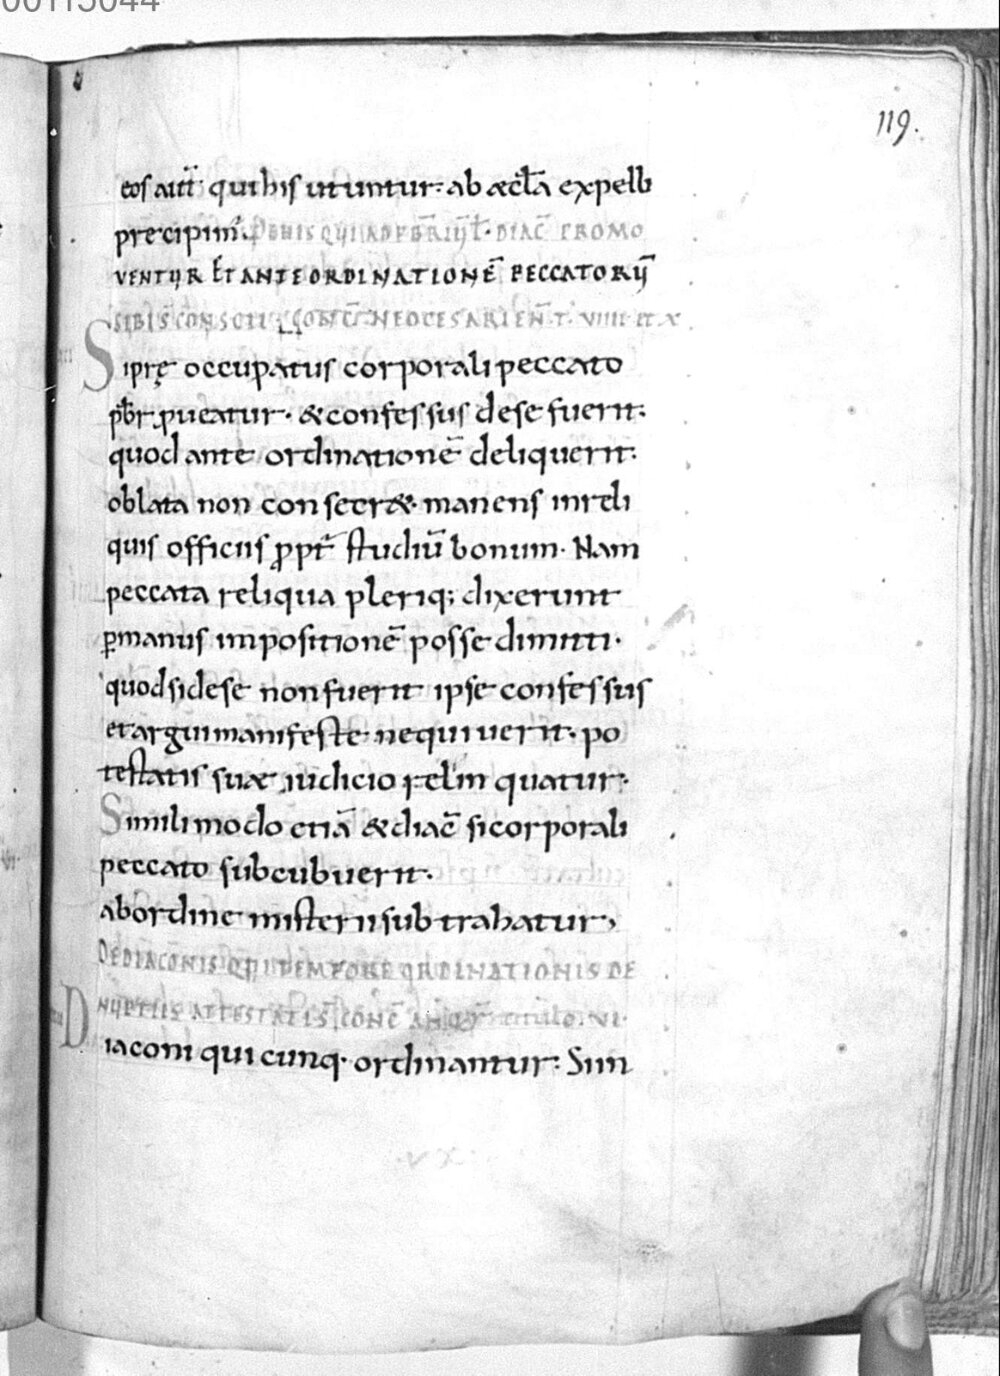 119.
eos aut̄ qui his utuntur: ab æcl̄a expelli
precipim̄. De his qui ad pr̄brm̄ ł diac̄ promo
ventur et ante ordinationē peccatorū
sibi s̄ conscii. Neocesarien̄ t. viiii et x
Siprę occupatus corporali peccato
pb̄r ꝓueatur. & confessus de se fuerit:
quod ante ordinationē deliquerit:
oblata non consecr&. manens in reli
quis officiis ꝓpt̄ studiū bonum. Nam
peccata reliqua pleriq; dixerunt
ꝑmanus impositionē posse dimitti.
quod si de se non fuerit ipse confessus
et argui manifeste nequiuerit. po
testatis suæ iudicio relinquatur:
Simili modo etiā & diac̄ si corporali
peccato subcubuerit.
ab ordine misterii subtrahatur,
De diaconis qui tempore ordinationis de
nuptiis attestatis conc̄ titulo. vi.
Diaconi quicunq. ordinantur: Si in